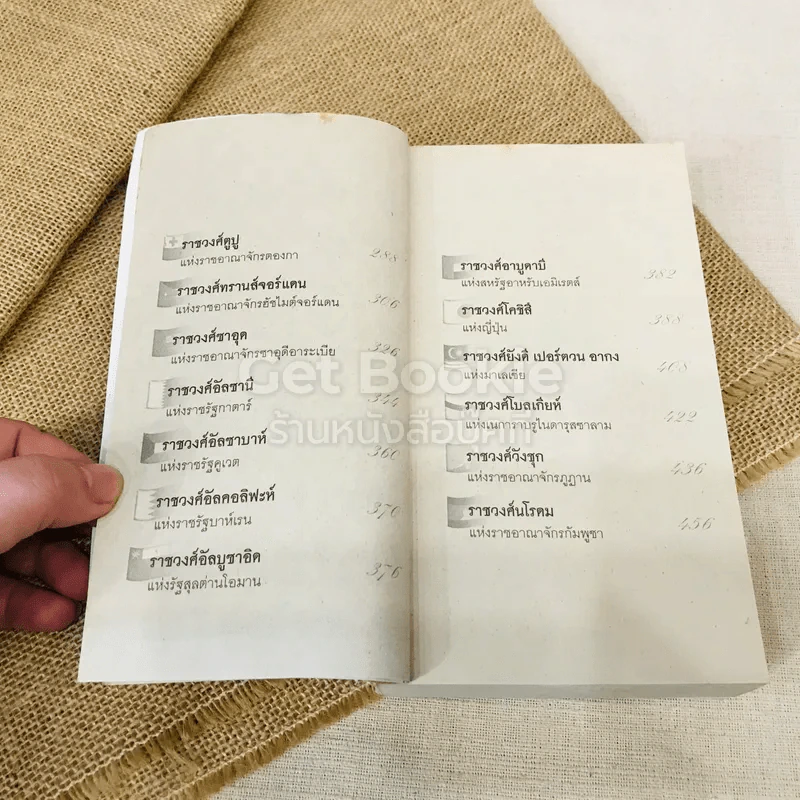 ราชวงศ์ตูปู
แห่งราชอาณาจักรตองกา 288
ราชวงศ์ทรานส์จอร์แดน
แห่งราชอาณาจักรฮัชไมต์จอร์แดน 306
ราชวงศ์ซาอุด
แห่งราชอาณาจักรซาอุดีอาระเบีย 326
ราชวงศ์อัลซานี
แห่งราชรัฐกาตาร์ 344
ราชวงศ์อัลซาบาห์
แห่งราชรัฐคูเวต 360
ราชวงศ์อัลคอลิฟะห์
แห่งราชรัฐบาห์เรน 370
ราชวงศ์อัลบูซาอิด
แห่งรัฐสุลต่านโอมาน 376
ราชวงศ์อาบูดาบี
แห่งสหรัฐอาหรับเอมิเรตส์ 382
ราชวงศ์โคชิสึ
แห่งญี่ปุ่น 388
ราชวงศ์ยังดี เปอร์ตวน อากง
แห่งมาเลเซีย 408
ราชวงศ์โบลเกียห์
แห่งเนการาบรูไนดารุสซาลาม 422
ราชวงศ์วังชุก
แห่งราชอาณาจักรภูฏาน 436
ราชวงศ์นโรดม
แห่งราชอาณาจักรกัมพูชา 456
Get Bookie
ร้านหนังสือบุ๊คกี้